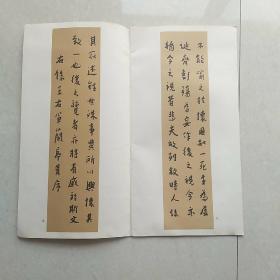 不能喻之於懷固知一死生為虛
誕齊彭殤為妄作後之視今亦
猶今之視昔悲夫故列敘時人錄
其所述雖世殊事異所以興懷其
致一也後之覽者亦將有感於斯文
右錄王右軍蘭亭集序